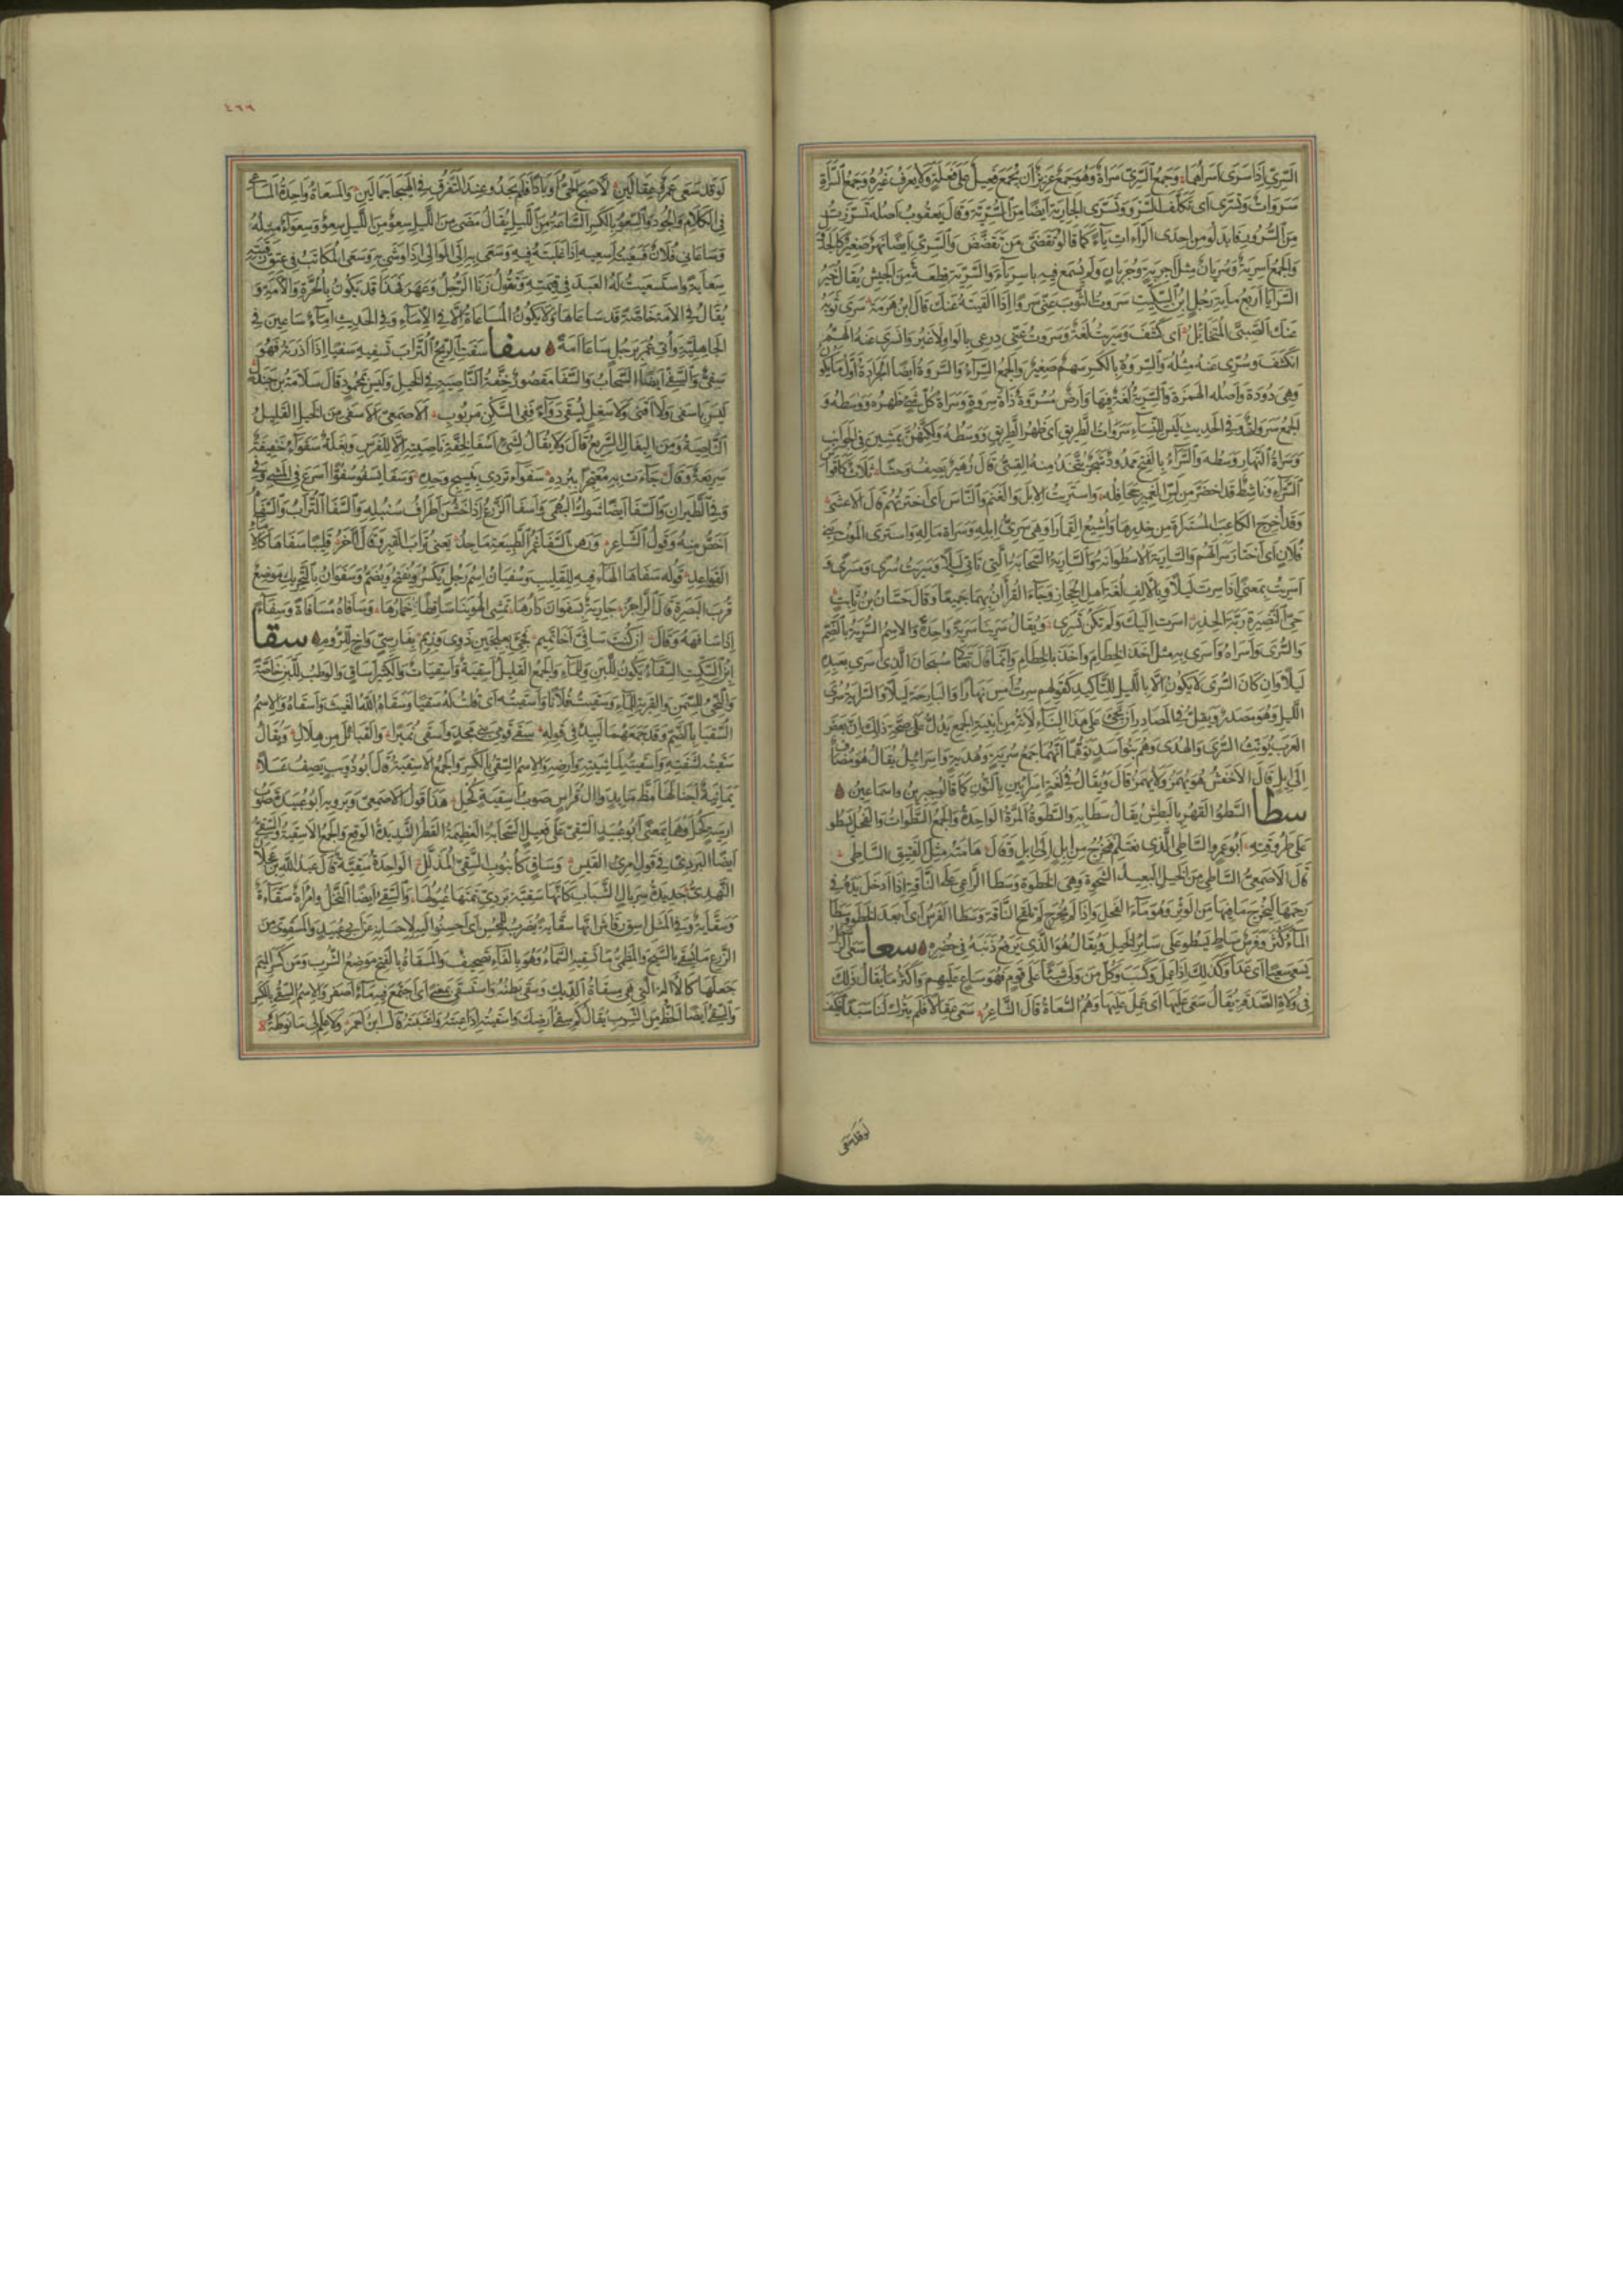 السري اذا سرى اسراهما وجمع السري سراة وهو جمع عزيز ان يجمع فعيل على فعلة ولا يعرف غيره وجمع السراة
سروات وتسرى اى تكلف السرو وتسرى الجارية ايضا من السرية وقال يعقوب اصله تسررت
من السرور فابدلوا من احدى الراءات ياء كما قالوا تقضى من تقضض والسرى ايضا نهر صغير كالجدول
والجمع اسرية وسريان مثل اجربة وجربان ولم يسمع فيه باسرياء والسرية قطعة من الجيش يقال خير
السرايا اربع ماية رجل ابن السكيت سروت الثوب عنى سروا اذا القيته عنك قال ابن هرمة سرى ثوبه
عنك الصبى المتخائل اى كشف وسريت لغة وسروت عنى درعى بالواو لا غير وانسرى عنه الهم
انكشف وسرى عنه مثله والسروة بالكسر سهم صغير والجمع السراء والسروة ايضا الجرادة اول ما يكون
وهى دودة واصله الهمزة والسرية لغة فيها وارض مسروة ذاة سروة وسراة كل شئ ظهره ووسطه و
الجمع سروات وفى الحديث ليس للنساء سروات الطريق اى ظهر الطريق ووسطه ولكنهن يمشين فى الجوانب
وسراة النهار وسطه والسراء بالفتح ممدود شجر يتخذ منه القسى قال زهير يصف وحشا ثلاث كاقواس
السراء وناشط قد اخضر من لس الغمير جحافله واستريت الابل والغنم والناس اى اخترتهم قال الاعشى
وقد اخرج الكاعب المستراة من خدرها واشيع القمارا وهى سرى ابله وسراة ماله واسترى الموت بنى
فلان اى اختار سراتهم والسارية الاسطوانة والسارية السحابة التى تاتى ليلا وسريت سرى ومسرى و
اسريت بمعنى اذا سرت ليلا وبالالف لغة اهل الحجاز وجاء القرآن بهما جميعا وقال حسان بن ثابت
حى النضيرة ربة الخدر اسرت اليك ولم تكن تسرى ويقال سرينا سرية واحدة والاسم السرية بالضم
والسرى واسراه واسرى به مثل اخذ الخطام واخذ بالخطام وانما قال تعالى سبحان الذى اسرى بعبده
ليلا وان كان السرى لا يكون الا بالليل للتاكيد كقولهم سرت امس نهارا والبارحة ليلا والسراية سرى
الليل وهو مصدر ويقل فى المصادر ان تجئ على هذا البناء لانه من ابنية الجمع يدل على صحة ذلك ان بعض
العرب يؤنث السرى والهدى وهم بنو اسد توهما انهما جمع سرية وهدية واسرائيل يقال هو مضاف
الى ايل قال الاخفش هو يهمز ولا يهمز قال ويقال فى لغة اسرايين بالنون كما قالوا جبرين واسماعين
سطا السطو القهر بالبطش يقال سطا به والسطوة المرة الواحدة والجمع السطوات والفحل يسطو
على طروقته ابو عمرو الساطى الذى يغتلم فيخرج من ابل الى ابل وقال هامته مثل الفنيق الساطى
قال الاصمعى الساطى من الخيل البعيد الشحوة وهى الخطوة وسطا الراعى على الناقة اذا ادخل يده فى
رحمها ليخرج ما فيها من الوثر وهو ماء الفحل واذا لم يخرج لم تلقح الناقة وسطا الفرس اى ابعد الخطو وسطا
الماء كثر وفرس ساط يسطو على سائر الخيل ويقال هو الذى يرفع ذنبه فى حضره سعا سعى الرجل
يسعى سعيا اى عدا وكذلك اذا عمل وكسب وكل من ولى شيئا على قوم فهو ساع عليهم واكثر ما يقال ذلك
فى ولاة الصدقة يقال سعى عليها اى عمل عليها وهم السعاة قال الشاعر سعى عقالا فلم يترك لنا سبدا فكيف
لو قد سعى
٤٦٦
لو قد سعى عمرو عقالين لاصبح الحى اوبادا فلم يجدوا عند التفرق فى الهيجا جمالين والمسعاة واحدة المساعى
فى الكلام والجود والسعو بالكسر الساعة من الليل يقال مضى من الليل سعو من الليل سعو وسعواء مثله
وساعانى فلان فسعيته اسعيه اذا غلبته فيه وسعى به الى الوالى اذا وشى به وسعى المكاتب فى عتق رقبته
سعاية واستسعيت له العبد فى قيمته وتقول زنا الرجل وعهر فهذا قد يكون بالحرة والامة و
يقال فى الامة خاصة قد ساعاها ولا يكون المساعاة الا فى الاماء وفى الحديث اماء ساعين فى
الجاهلية واتى عمر برجل ساعا امة سفا سفت الريح التراب تسفيه سفيا اذا اذرته فهو
سفى والسفى ايضا السحاب والسفا مقصور خفة الناصية فى الخيل وليس بمحمود قال سلامة بن جندل
ليس باسفى ولا اقنى ولا سغل يسقى دواء قفى السكن مربوب الاصمعى الاسفى من الخيل القليل
الناصية ومن البغال السريع قال ولا يقال لشئ اسفى لخفة ناصيته الا للفرس وبغلة سفواء خفيفة
سريعة وقال جاءت به معتجرا ببرده سفواء تردى بنسيج وحده وسفا يسفو سفوا اسرع فى المشى وفى
وفى الطيران والسفا ايضا شوك البهمى واسفا الزرع اذا خشن اطراف سنبله والسفا التراب والسفاة
اخص منه وقول الشاعر ورهن السفا غمر الطبيعة ماجد يعنى تراب القبر وقال الآخر قليبا سفاها كالاماء
القواعد قوله سفاها الهاء فيه للقليب وسفيان اسم رجل يكسر ويفتح ويضم وسفوان بالتحريك موضع
قرب البصرة قال الراجز جارية بسفوان دارها تمشى الهوينا ساقطا خمارها وسافاه مسافاة وسفاء
اذا سافهه وقال ان كنت سافى اخا تميم فجئ بعلجين ذوى وزيم بفارسى واخ للروم سقا
ابن السكيت السقاء يكون للبن والماء والجمع القليل اسقية واسقيات والكثير اساق والوطب للبن خاصة
والنحى للسمن والقربة للماء وسقيت فلانا واسقيته اى قلت له سقيا وسقاه الله الغيث واسقاه والاسم
السقيا بالضم وقد جمعهما لبيد فى قوله سقى قومى بنى مجد واسقى نميرا والقبائل من هلال ويقال
سقيته لشفته واسقيته لماشيته وارضه والاسم السقى بالكسر والجمع الاسقية قال ابو ذويب يصف عسلا
يمانية احيا لها مظ مابد وال قراس صوب اسقية كحل هذا قول الاصمعى ويرويه ابو عبيدة صوب
ارمية كحل وهما بمعنى ابو عبيد السقى على فعيل السحابة العظيمة القطر الشديدة الوقع والجمع الاسقية والسقى
ايضا البردى فى قول امرئ القيس وساق كانبوب السقى المذلل الواحدة سقية قال عبد الله بن عجلان
النهدى جديدة سربال الشباب كانها سقية بردى نمتها غيولها والسقى ايضا النخل وامراة سقاءة
وسقاية وفى المثل اسق رقاش انها سقاية يضرب للمحسن اى احسنوا اليه لاحسانه عن ابى عبيد والمسقوى من
الزرع ما يسقى بالسيح والمظمئ ما تسقيه السماء وهو بالفاء تصحيف والمسقاة بالفتح موضع الشرب ومن كسر الميم
جعلها كالآلة التى هى مسقاة الديك وسقى بطنه واستسقى بمعنى اى اجتمع فيه ماء اصفر والاسم السقى بالكسر
والسقى ايضا الحظ من الشرب يقال كم سقى ارضك واسقيته اذا عبته واغتبته قال ابن احمر ولا علم لى ما نوطة